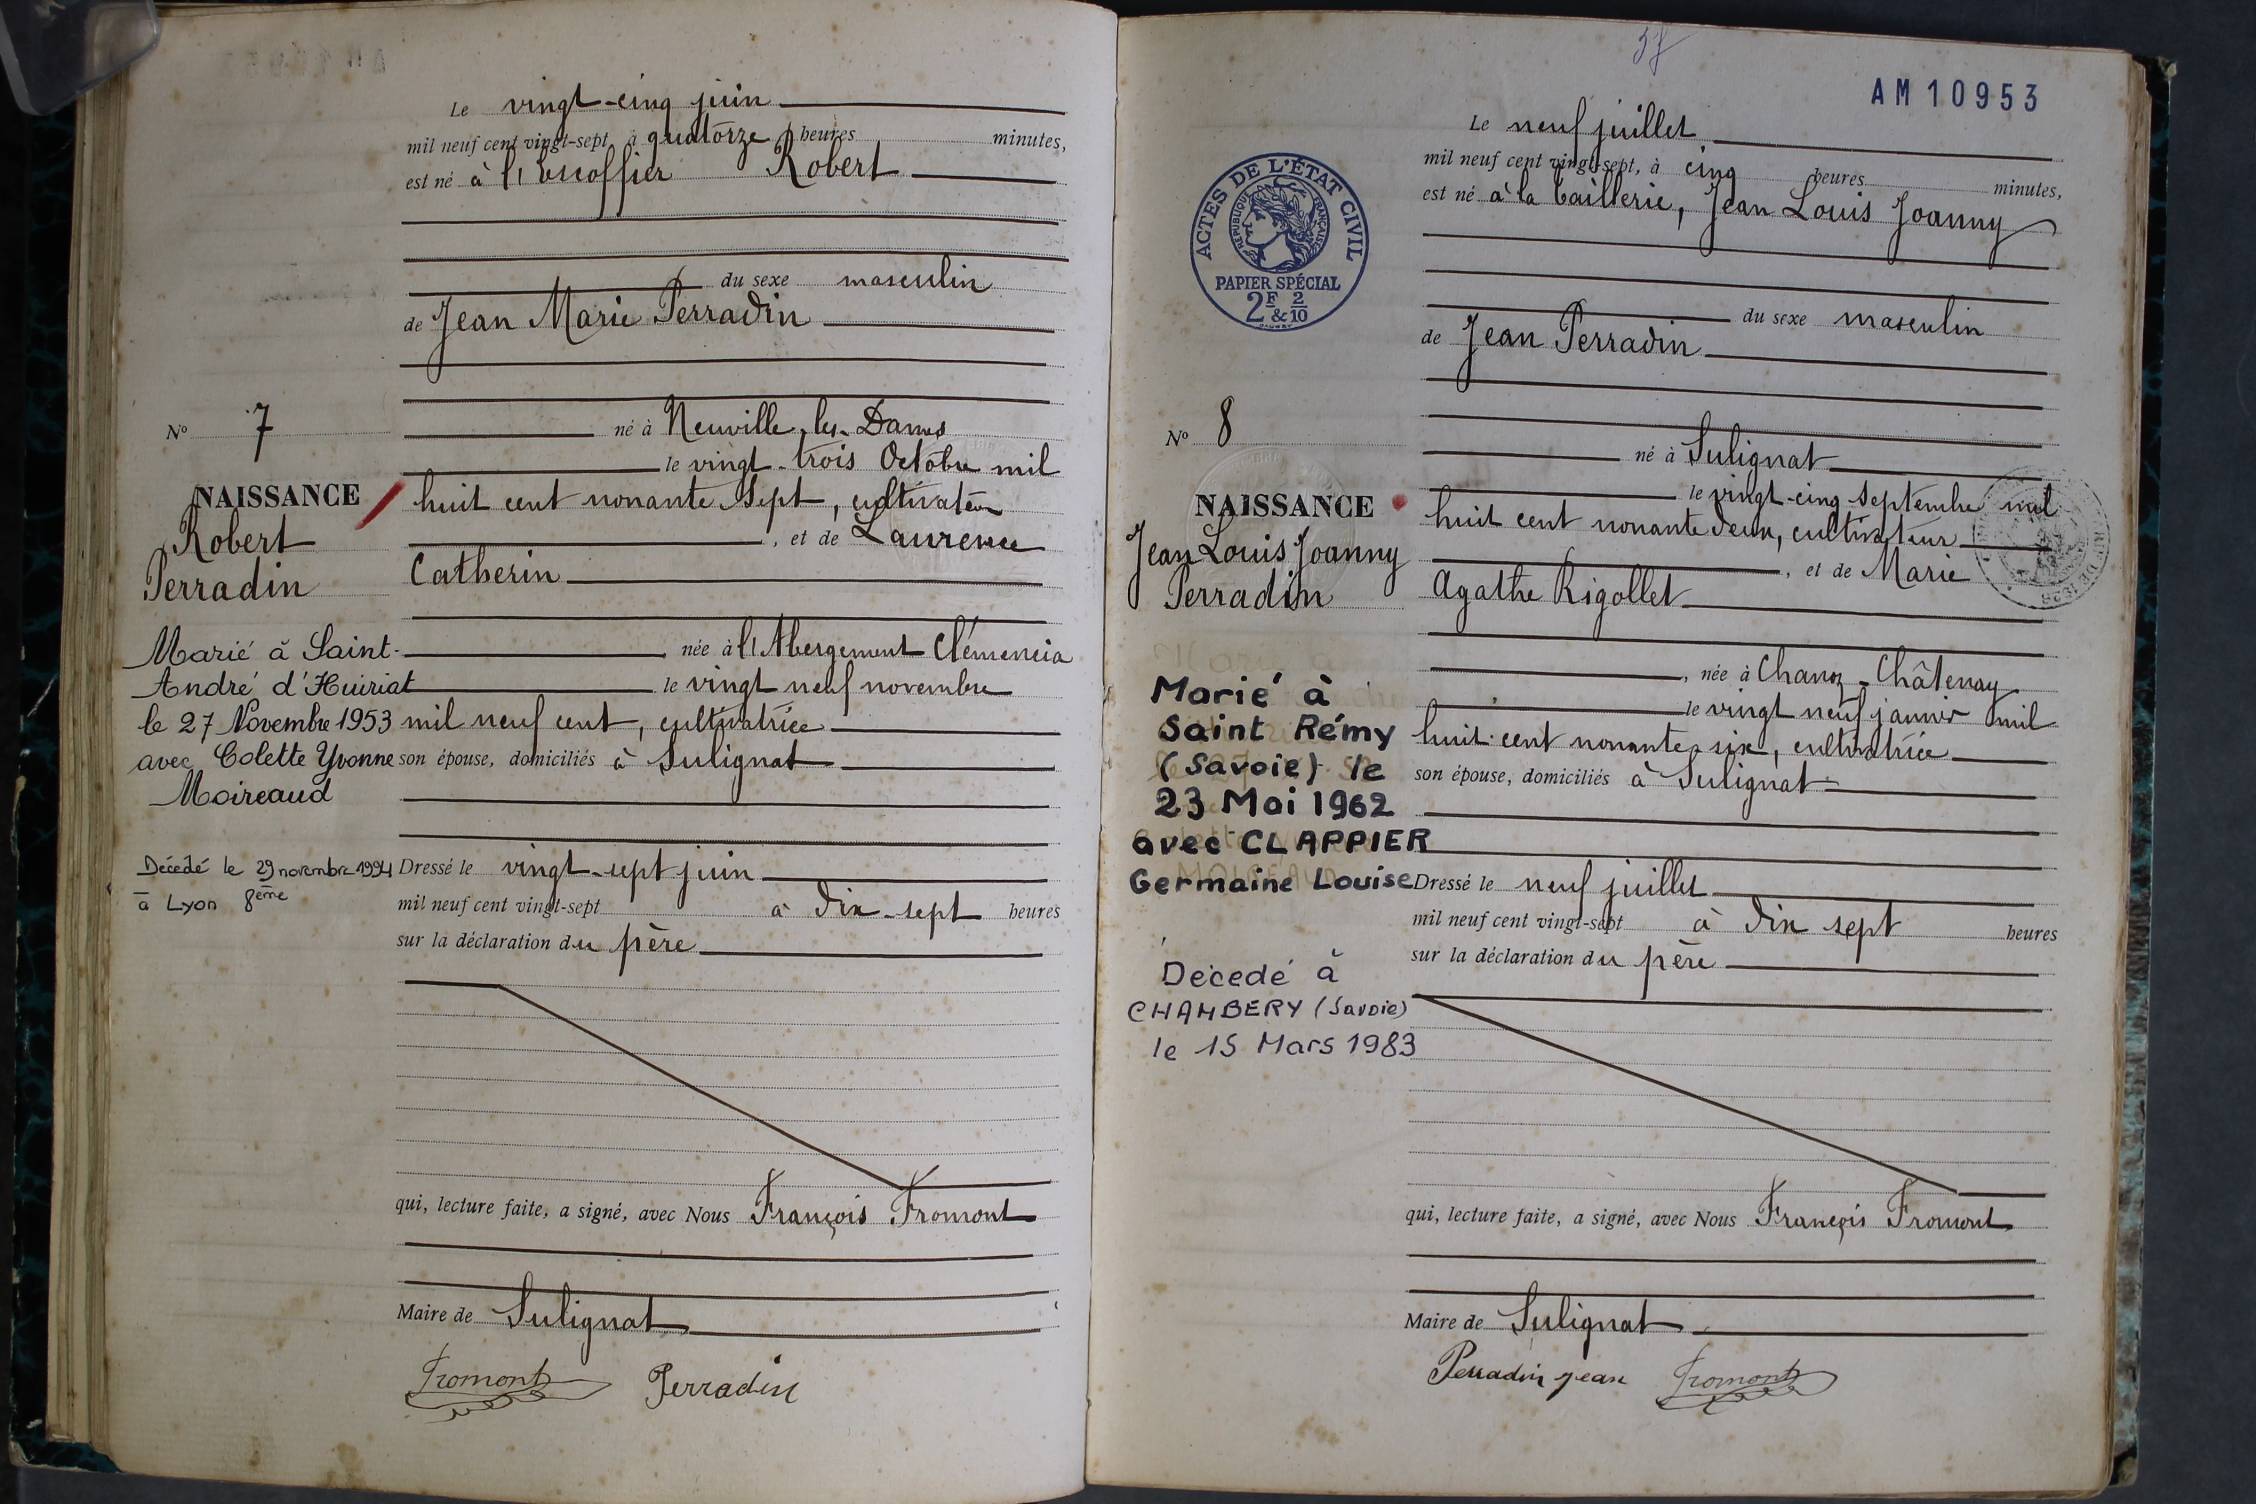 Le vingt-cinq juin
mil neuf cent vingt-sept, à quatorze heures minutes,
est né à l'Escoffier Robert
du sexe masculin
de Jean Marie Perradin
né à Neuville-les-Dames
le vingt-trois Octobre mil
huit cent nonante sept, cultivateur
, et de Laurence
Catherin
née à l'Abergement Clémencia
le vingt neuf novembre
mil neuf cent, cultivatrice
son épouse, domiciliés à Sulignat
Dressé le vingt-sept juin
mil neuf cent vingt-sept à dix-sept heures
sur la déclaration du père
qui, lecture faite, a signé, avec Nous François Fromont
Maire de Sulignat
Fromont Perradin
N° 7
NAISSANCE
Robert
Perradin
Marié à Saint-
André d'Huiriat
le 27 Novembre 1953
avec Colette Yvonne
Moireaud
Décédé le 29 novembre 1994
à Lyon 8ème
AM 10953
Le neuf juillet
mil neuf cent vingt-sept, à cinq heures minutes,
est né à la Caillerie, Jean Louis Joanny
du sexe masculin
de Jean Perradin
né à Sulignat
le vingt-cinq septembre mil
huit cent nonante deux, cultivateur
, et de Marie
Agathe Rigollet
, née à Chanoz-Châtenay
le vingt neuf janvier mil
huit cent nonante six, cultivatrice
son épouse, domiciliés à Sulignat
Dressé le neuf juillet
mil neuf cent vingt-sept à dix sept heures
sur la déclaration du père
qui, lecture faite, a signé, avec Nous François Fromont
Maire de Sulignat
Perradin Jean Fromont
ACTES DE L'ÉTAT CIVIL
RÉPUBLIQUE FRANÇAISE
PAPIER SPÉCIAL
2F & 2/10
N° 8
NAISSANCE
Jean Louis Joanny
Perradin
Marié à
Saint Rémy
(Savoie) le
23 Mai 1962
avec CLAPPIER
Germaine Louise
Décedé à
CHAMBERY (Savoie)
le 15 Mars 1983